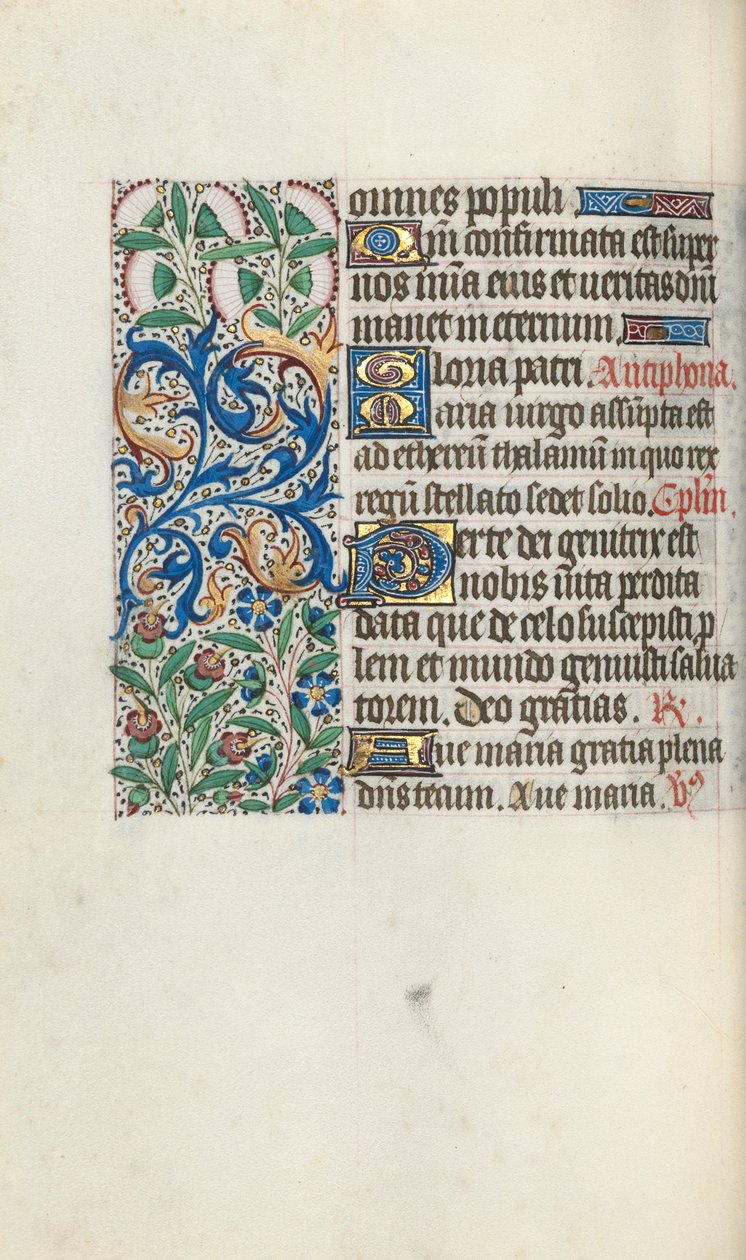 omnes populi
Qm̄ confirmata est super
nos mīa eius et veritas dn̄i
manet in eternum.
Gloria patri. Antiphona.
Maria virgo assūpta est
ad ethereū thalamū in quo rex
regū stellato sedet solio. Cpl̄m.
Perte dei genitrix est
nobis vita perdita
data que de celo suscepisti p
lem et mundo genuisti salua
torem. Deo gratias. R.
Aue maria gratia plena
dn̄s tecum. Aue maria. Vꝰ